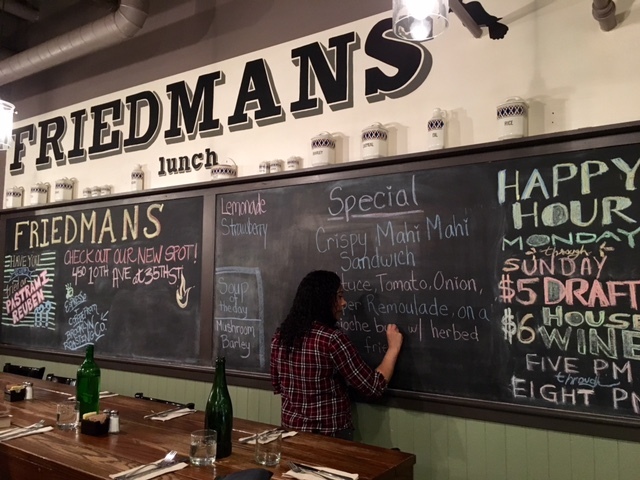 FRIEDMANS
lunch
FRIEDMANS
HAVE YOU
PASTRAMI
REUBEN
CHECK OUT OUR NEW SPOT!
450 10TH AVE at 35TH ST
Lemonade
Strawberry
Soup
of the
day
Mushroom
Barley
Special
Crispy Mahi Mahi
Sandwich
Tomato, Onion,
Remoulade, on a
w/ herbed
HAPPY
HOUR
MONDAY
through
SUNDAY
$5 DRAFT
$6 HOUSE
WINE
FIVE PM
through
EIGHT PM